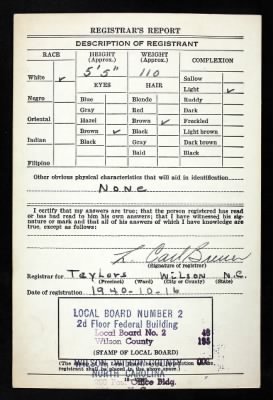 REGISTRAR'S REPORT
DESCRIPTION OF REGISTRANT
RACE HEIGHT (Approx.) WEIGHT (Approx.) COMPLEXION
5' 5" 110
White ✓ EYES HAIR Sallow
Light ✓
Negro Blue Blonde Ruddy
Gray Red Dark
Oriental Hazel Brown ✓ Freckled
Brown ✓ Black Light brown
Indian Black Gray Dark brown
Bald Black
Filipino
Other obvious physical characteristics that will aid in identification
None
I certify that my answers are true; that the person registered has read or has had read to him his own answers; that I have witnessed his signature or mark and that all of his answers of which I have knowledge are true, except as follows:
(Signature of registrar)
Registrar for Taylors Wilson N.C.
(Precinct) (Ward) (City or County) (State)
Date of registration 1940-10-16
LOCAL BOARD NUMBER 2
2d Floor Federal Building
Local Board No. 2 48
Wilson County 195
(STAMP OF LOCAL BOARD) 002
WILSON COUNTY
NORTH CAROLINA
Office Bldg.